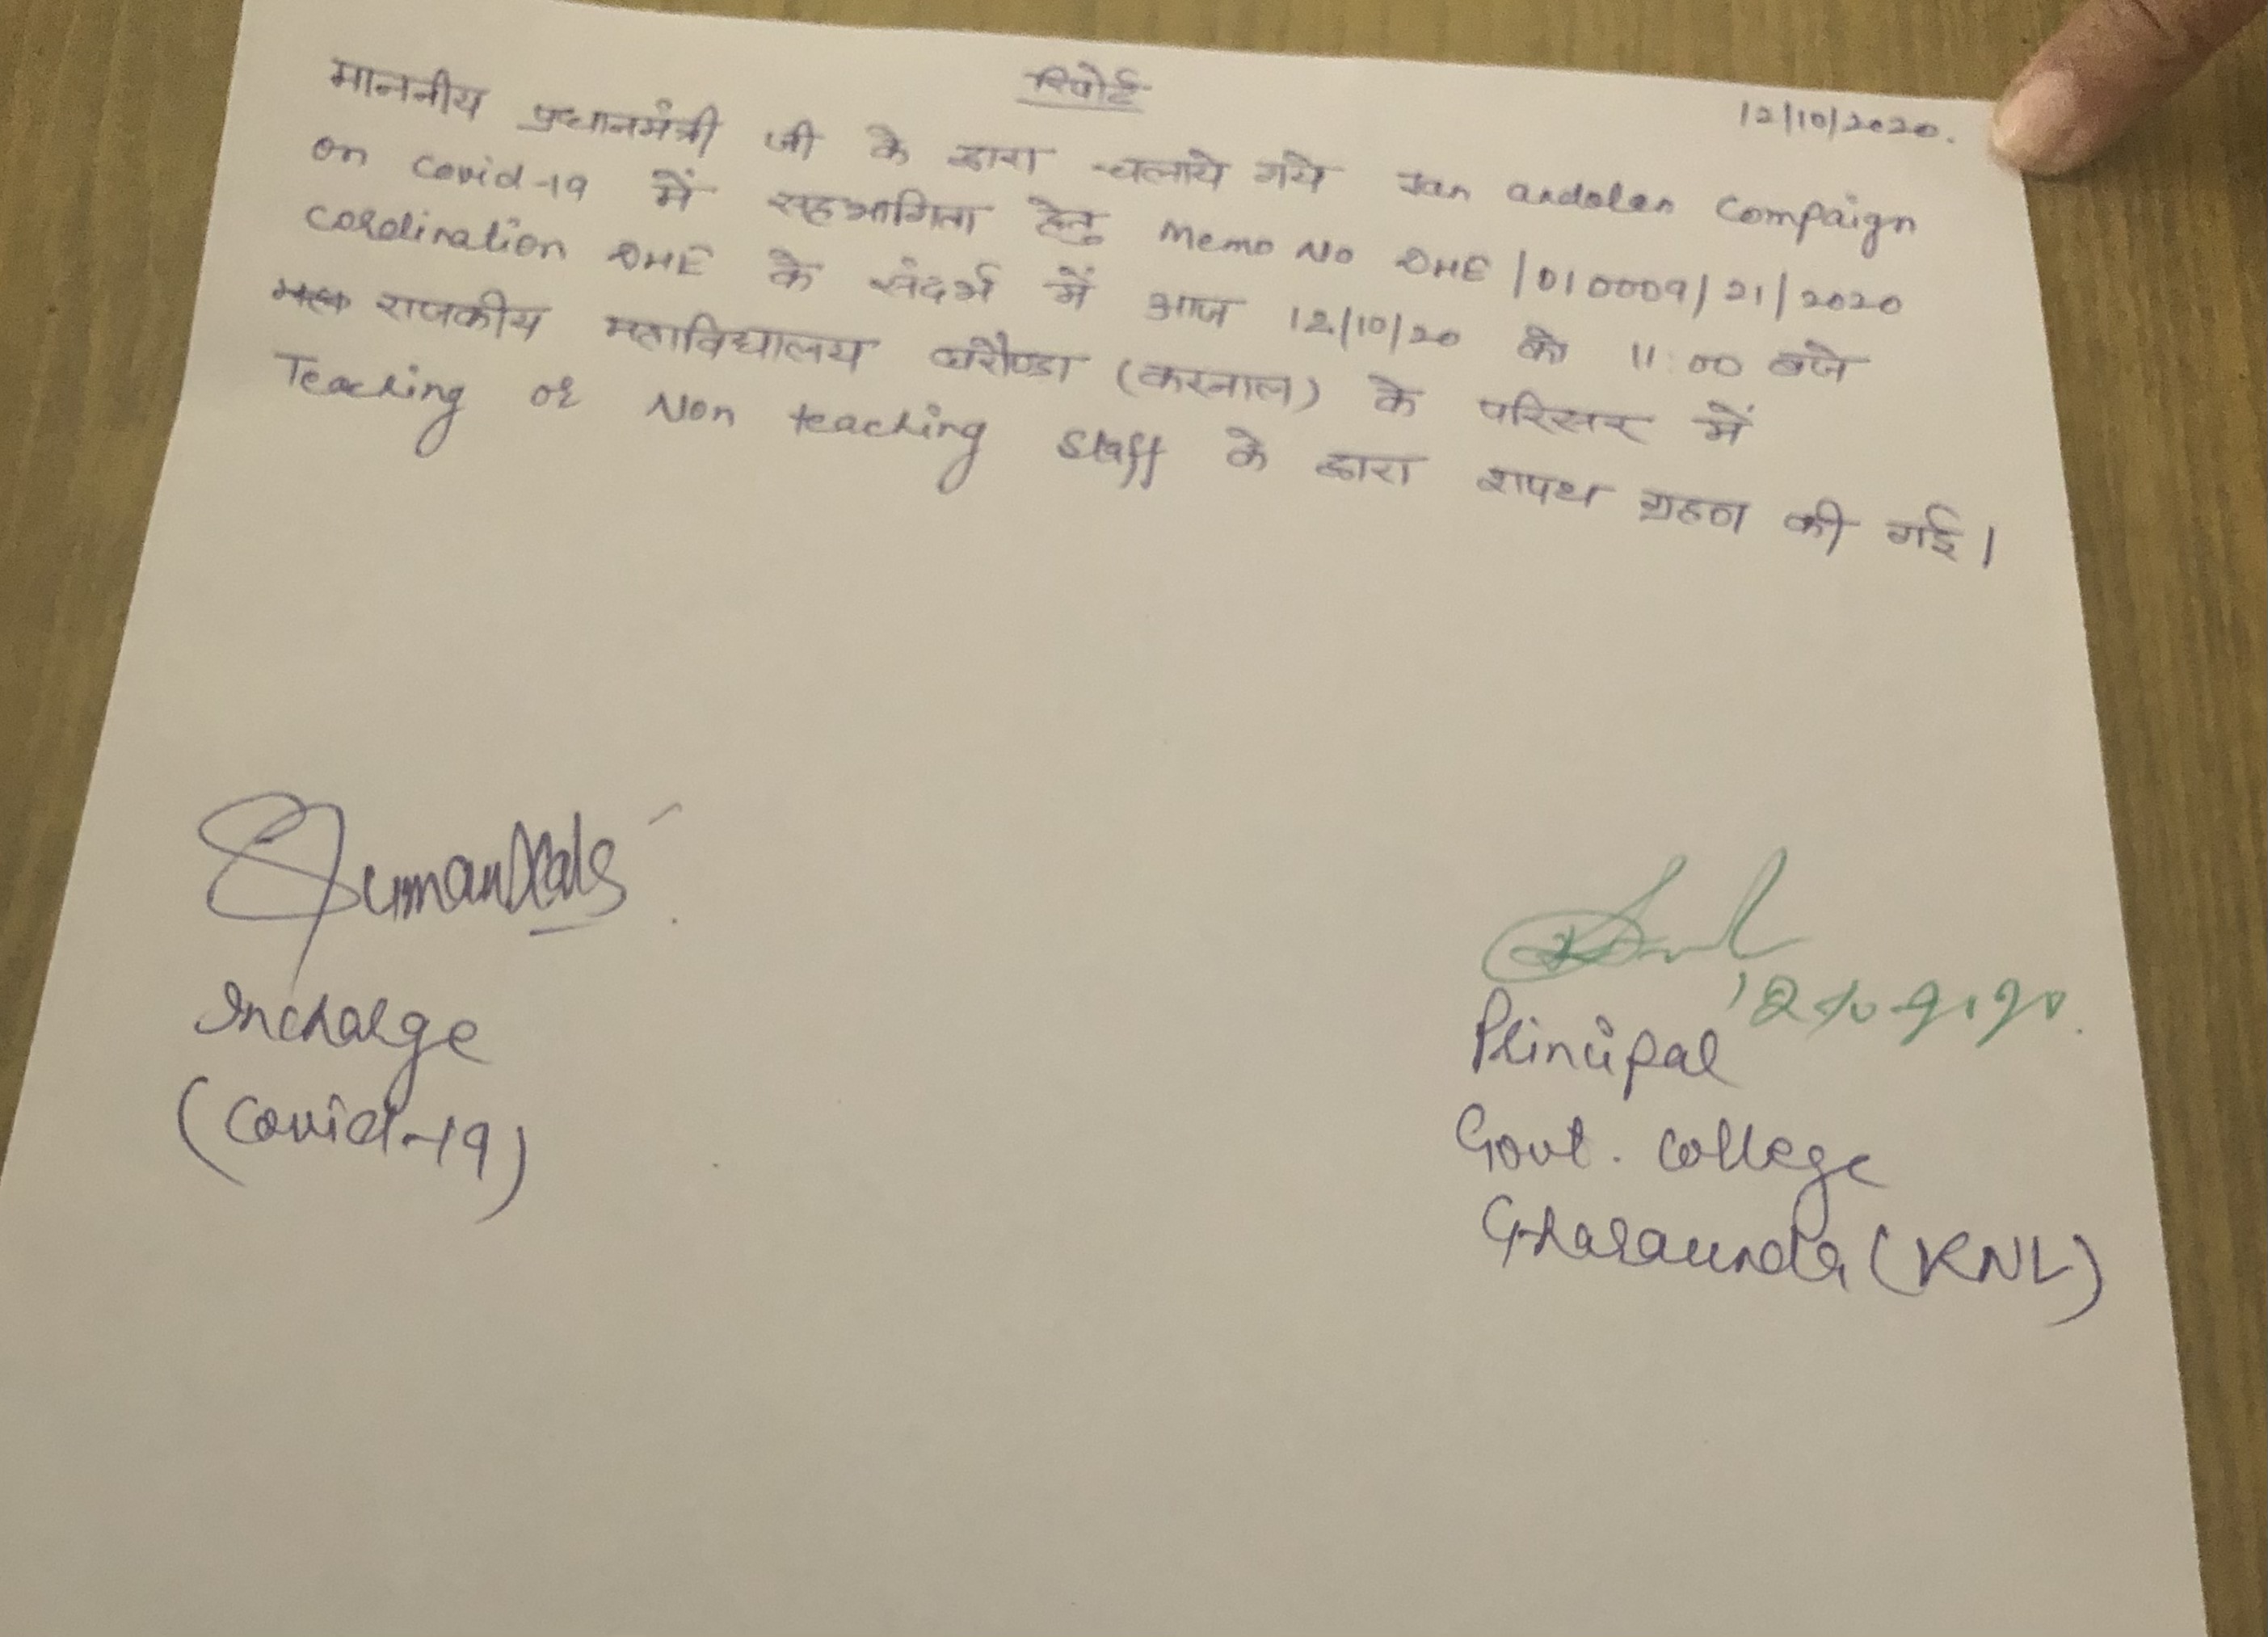 रिपोर्ट
12/10/2020.
माननीय प्रधानमंत्री जी के द्वारा चलाये गये Jan andolan Compaign
on Covid-19 में सहभागिता हेतु Memo No DHE/010009/21/2020
Cordination DHE के संदर्भ में आज 12/10/20 को 11:00 बजे
राजकीय महाविद्यालय घरौण्डा (करनाल) के परिसर में
Teaching or Non teaching Staff के द्वारा शपथ ग्रहण की गई।
Incharge
(Covid-19)
Principal
Govt. College
Gharaunda (KNL)